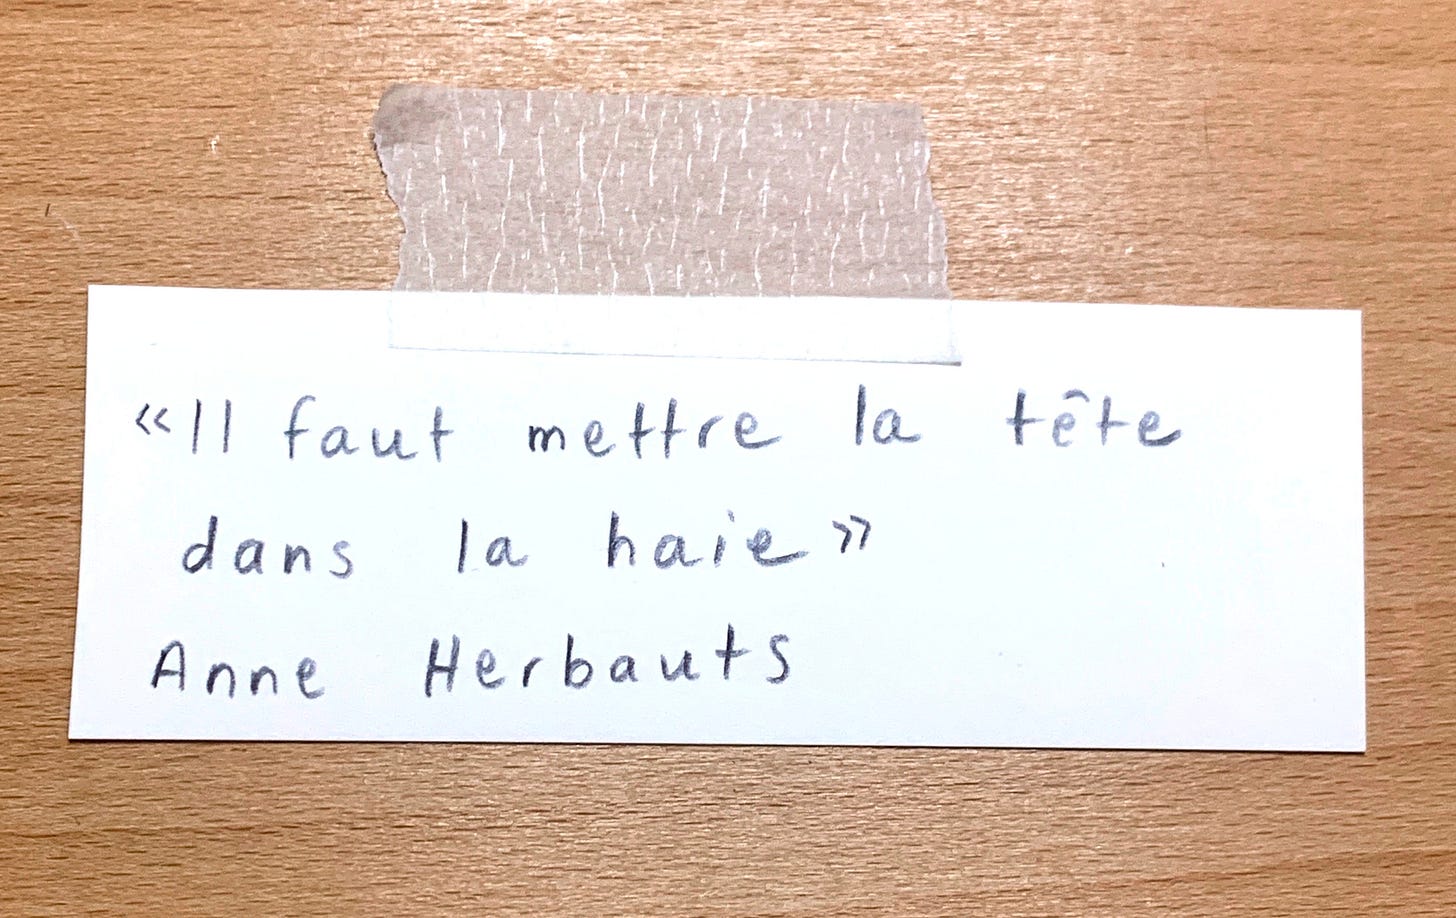 «Il faut mettre la tête
dans la haie»
Anne Herbauts